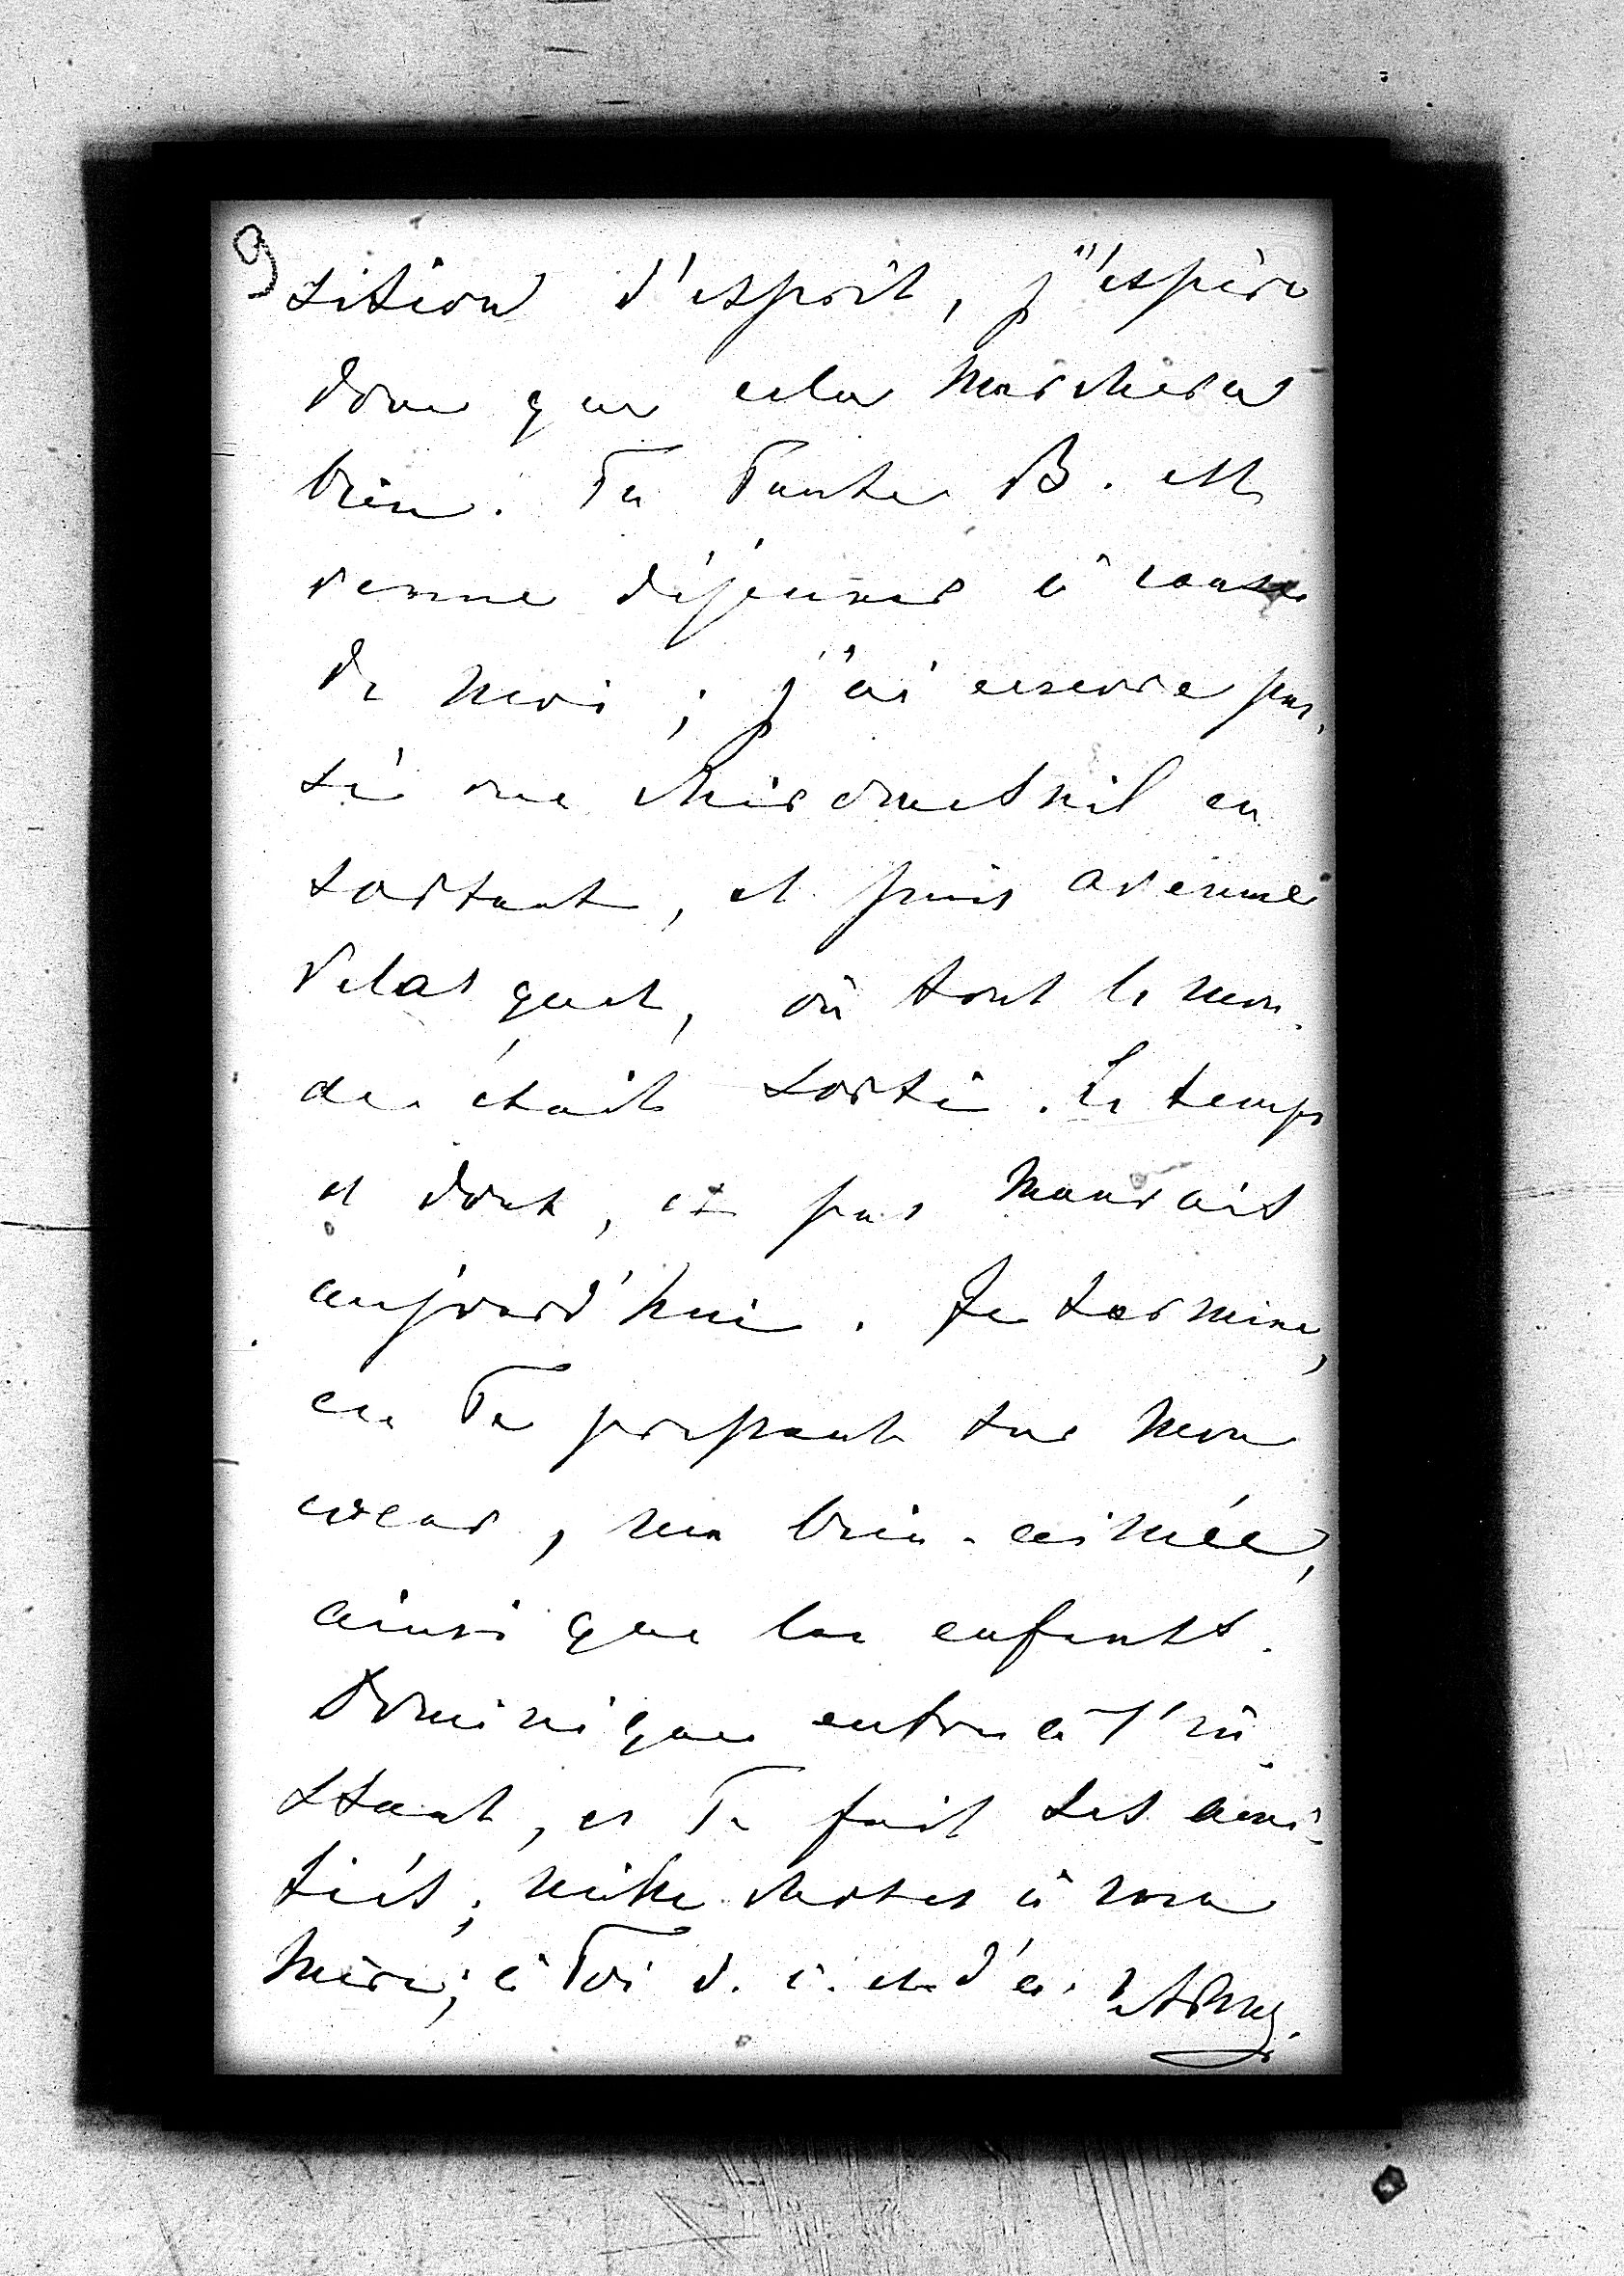 9
sition d'esprit, j'espère
donc que cela marchera
bien. Ta Tante B. est
venue déjeuner à cause
de moi ; j'ai encore pas-
sé rue Miromesnil en
sortant, et puis avenue
Velasquet, où tout le mon-
de était sorti. Le temps
est doux, et pas mauvais
aujourd'hui. Je termine,
en Te pressant sur mon
cœur, ma bien-aimée,
ainsi que les enfants.
Dominique entre à l'in-
stant, et Te fait ses ami-
tiés ; mille choses à ma
mère ; à Toi d. c. et d'a.